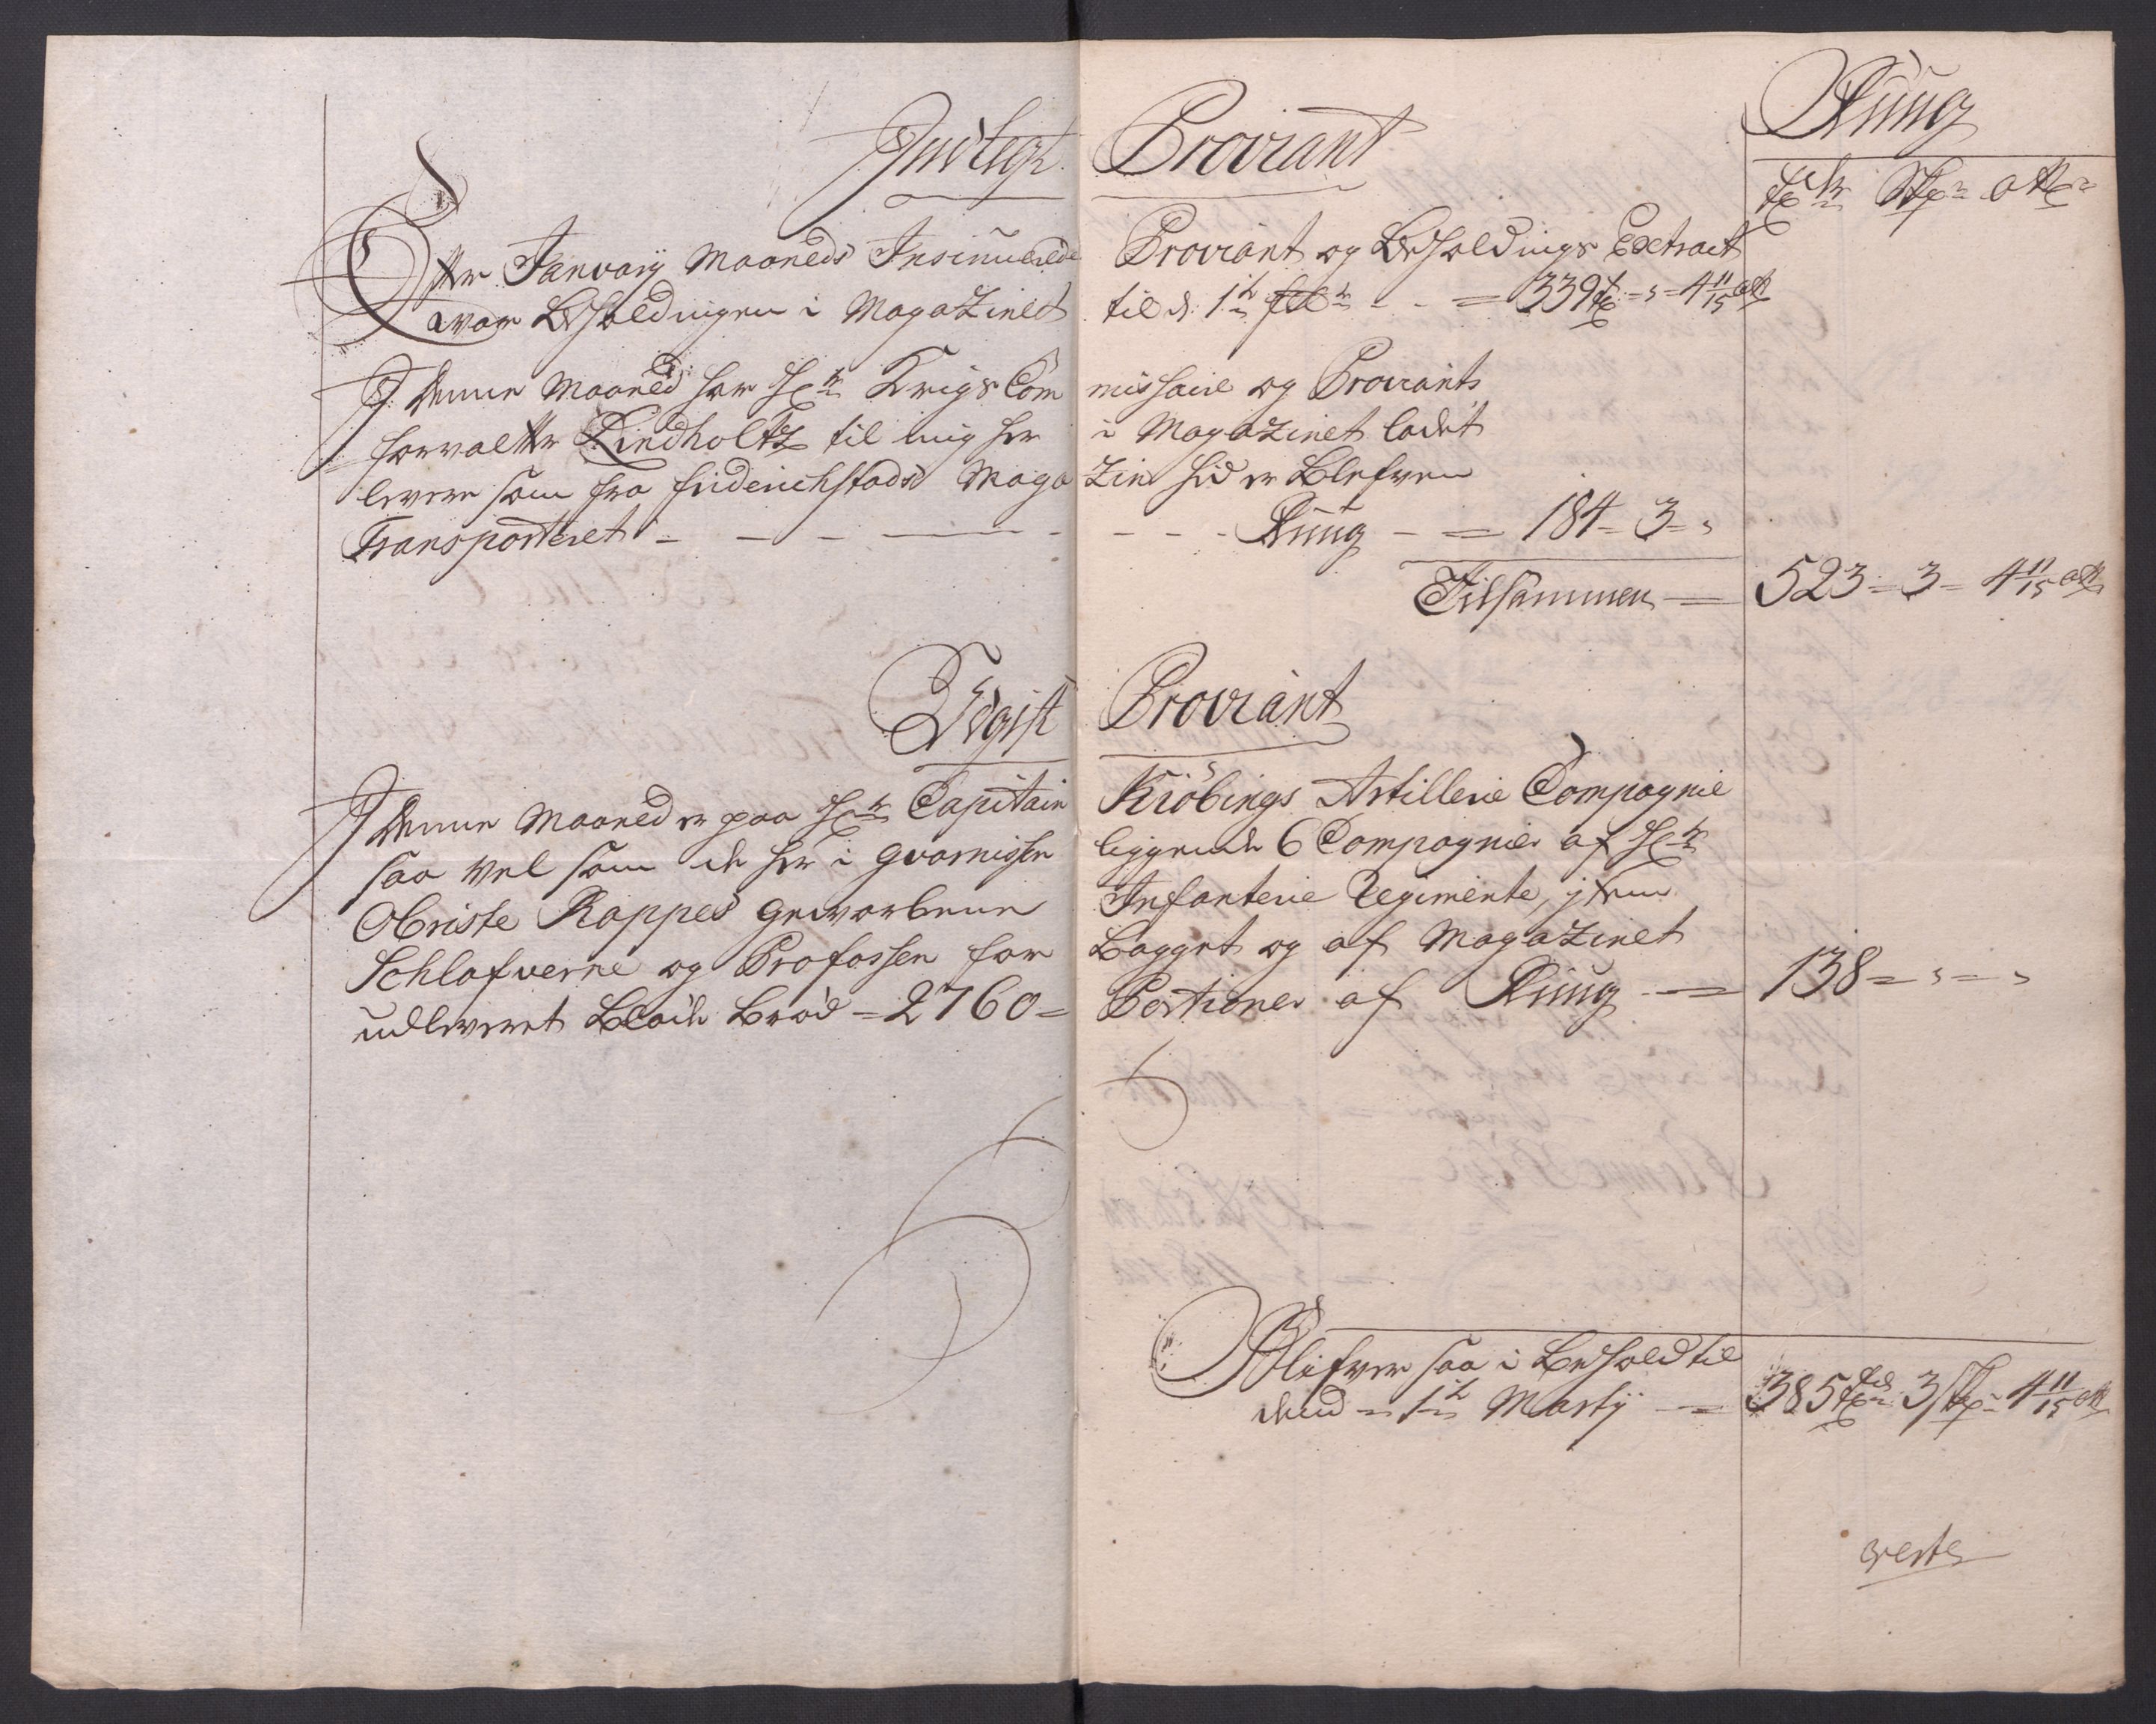 Indtegt Proviant
Rúúg
Tdr Skp otk
Efter Janvarij Maaneds Insinúerede Proviant og Beholdings Extract
war Beholdningen i Magazinet til d: 1te febr = 339 = 4 11/15 otk
J denne Maaned har Hr Krigs Com missaire og Proviants
forvalter Lindholtz til mig her i Magazinet ladet
levere som fra friderichstads Maga Zin hid er Blefven
Transporteret Rúúg = 184 = 3 =
Tilsammen = 523 = 3 = 4 11/15 otk
Udgift Proviant
J denne Maaned er paa Hr Capitain Kiöbings Artillerie Compagnie
saa vel som de her i gvarnison liggende 6 Compagnier af Hr
Obriste Rappes gevorbene Infanterie Regimente, item
Schlafverne og Profossen for Bagget og af Magazinet
udleveret Bröd = 2760 = Portioner af Rúúg = 138 =
Blifver saa i Behold til
dend 1te Martij = 385 tdr 3 Skp 4 11/15 otk
verte